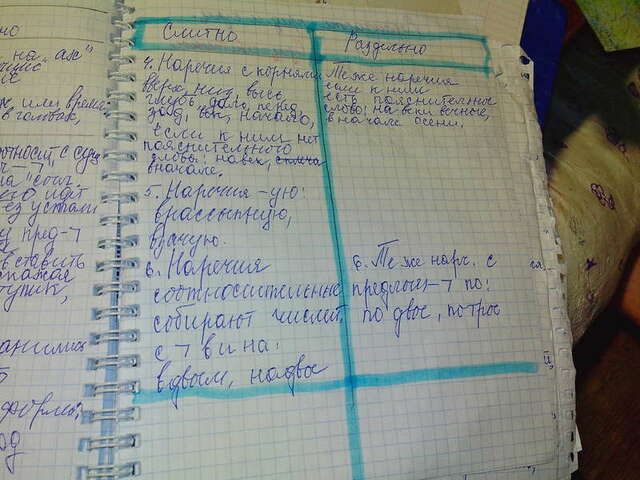 Слитно
Раздельно
4. Наречия с корнями
верх, низ, высь,
глубь, даль, перед,
зад, век, начало,
если к ним нет
пояснительного
слова: навек,
вначале.
Те же наречия
если к ним
есть пояснительное
слово: на веки вечные,
в начале осени.
5. Наречия -ую:
врассыпную,
вдачую.
6. Наречия
соотносительные
собирают. числит.
с ¬ в и на:
вдвоём, надвое
6. Те же нареч. с
предлог-¬ по:
по двое, по трое
на "ах"
или время
соотносит с сущ
идт
ез устали
у пред-¬
вставить
тупик,